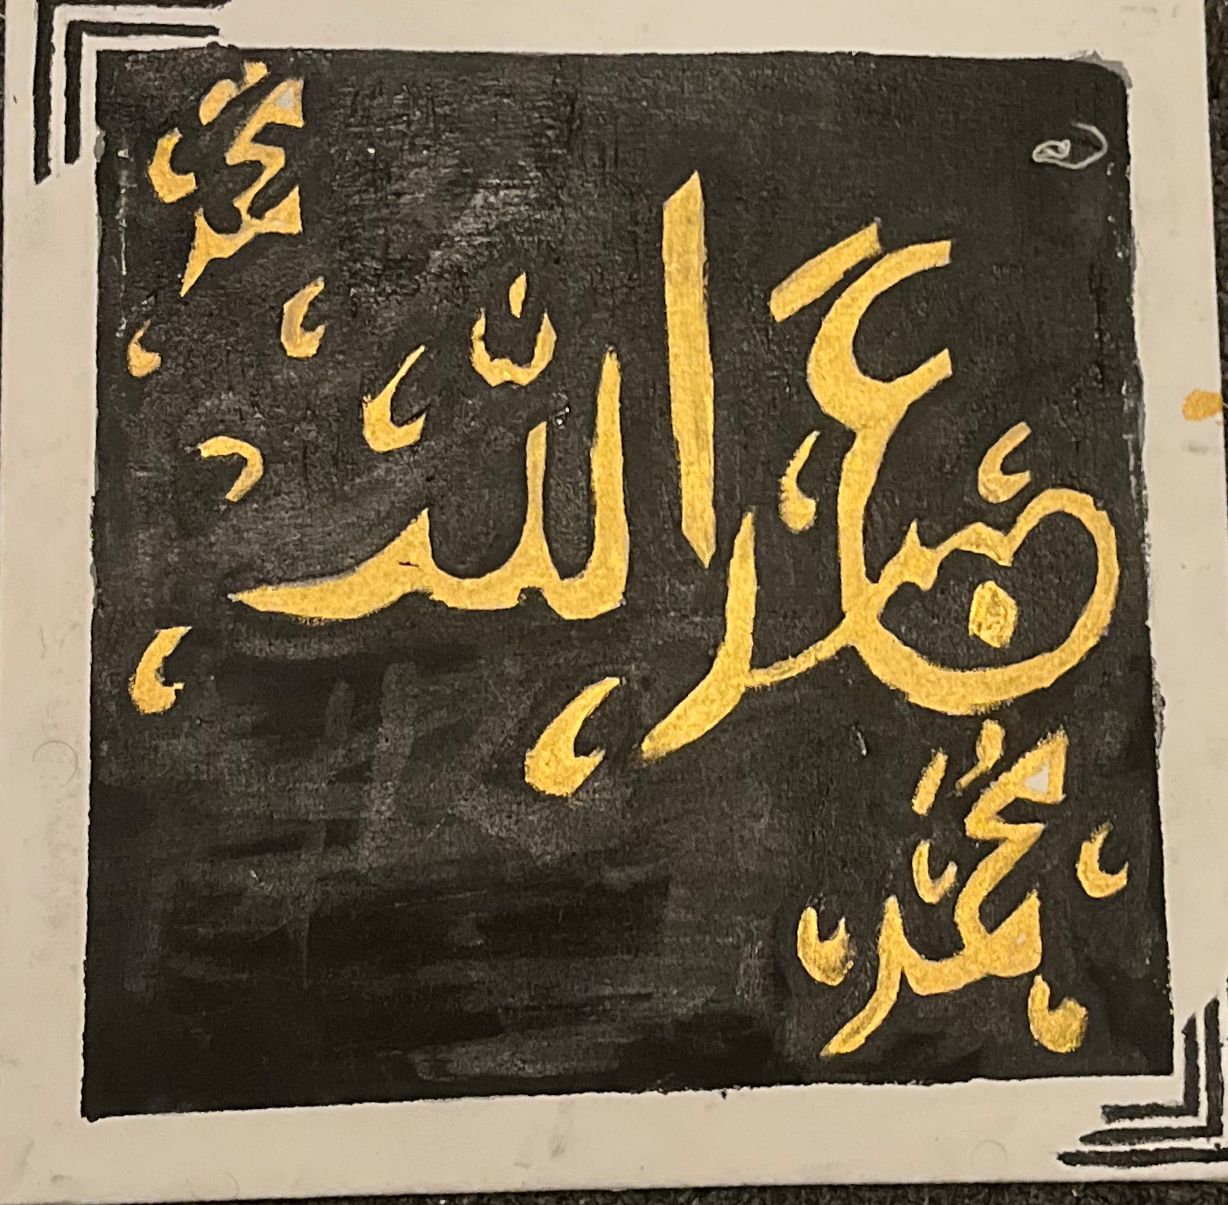 محمد
بن عبد الله
محمد